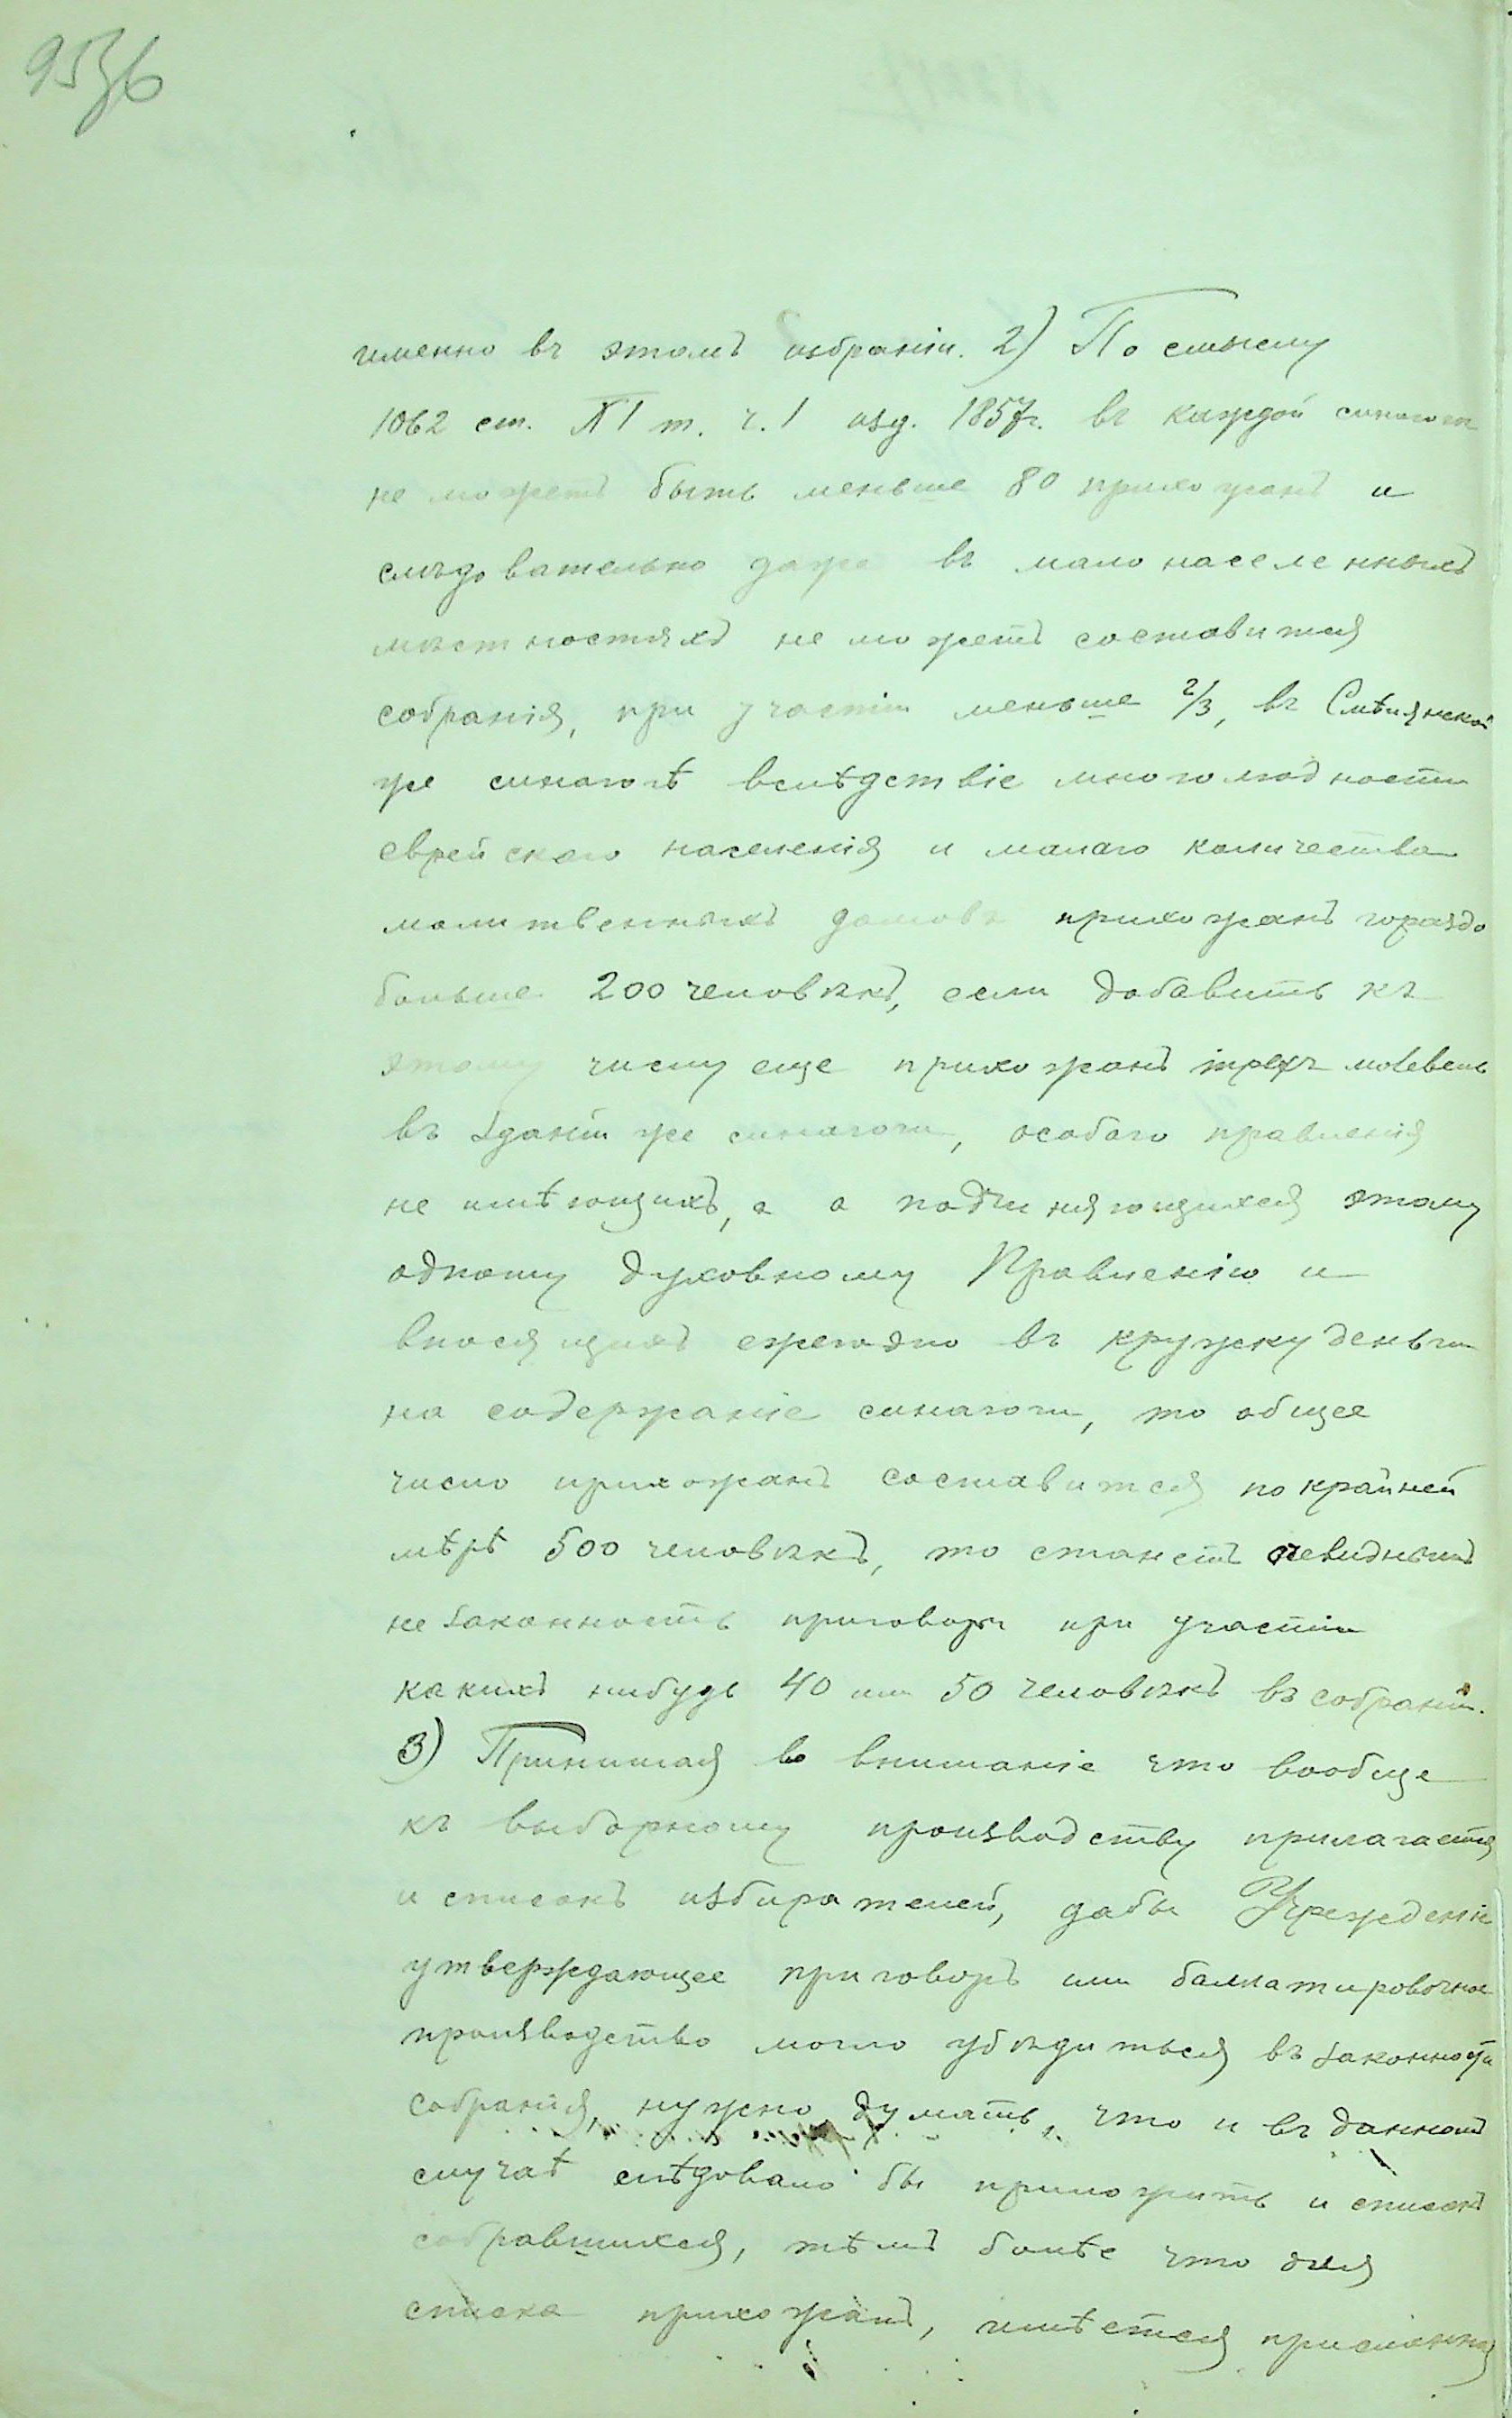 9536
именно въ этомъ избраніи. 2) По смыслу
1062 ст. XI т. ч. 1 изд. 1857г. въ каждой синагогѣ
не можетъ быть меньше 80 прихожанъ и
слѣдовательно даже въ мало населенныхъ
мѣстностяхъ не можетъ составится
собранія, при участіи меньше 2/3, въ Смѣлянской
же синагогѣ вслѣдствіе многолюдности
еврейскаго населенія и малаго количества
молитвенныхъ домовъ прихожанъ гораздо
больше 200 человѣкъ, если добавить къ
этому числу еще прихожанъ трехъ молелень
въ зданіи же синагоги, особаго правленія
не имѣющихъ, а а подчиняющихся этому
одному духовному Правленію и
вносящихъ ежегодно въ кружку деньги
на содержаніе синагоги, то общее
число прихожанъ составится по крайней
мѣрѣ 500 человѣкъ, то станетъ очевиднымъ
незаконность приговора при участіи
какихъ нибудь 40 или 50 человѣкъ въ собраніи.
3) Принимая во вниманіе что вообще
къ выборному производству прилагается
и списокъ избирателей, дабы Учрежденіе
утверждающее приговоръ или баллатировочное
производство могло убѣдиться въ законности
собранія, нужно думать, что и въ данномъ
случаѣ слѣдовало бы приложить и списокъ
собравшихся, тѣмъ болѣе что для
списка прихожанъ, имѣется присланная